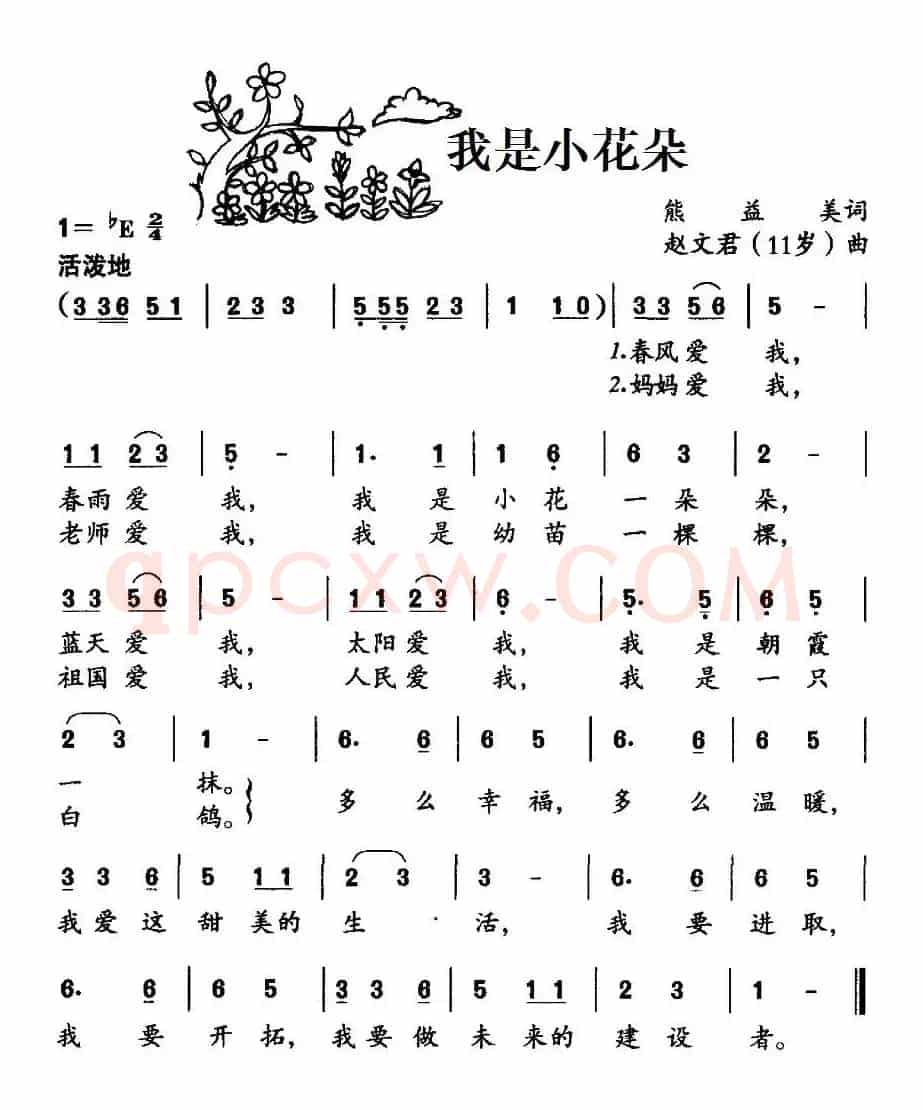 我是小花朵
熊益美词
1=♭E 2/4
赵文君(11岁)曲
活泼地
(3 36 51 | 23 3 3 | 5 55 23 | 1 10) | 33 56 | 5 - |
1.春风爱 我,
2.妈妈爱 我,
11 23 | 5 - | 1. 1 | 1 6 | 6 3 | 2 - |
春雨爱 我, 我 是 小 花 一 朵 朵,
老师爱 我, 我 是 幼 苗 一 棵 棵,
qpcxw.COM
33 56 | 5 - | 11 23 | 6 - | 5. 5 | 6 5 |
蓝天爱 我, 太阳爱 我, 我 是 朝 霞
祖国爱 我, 人民爱 我, 我 是 一 只
2 3 | 1 - | 6. 6 | 6 5 | 6. 6 | 6 5 |
一 抹。
白 鸽。
多 么 幸 福, 多 么 温 暖,
3 3 6 | 5 11 | 2 3 | 3 - | 6. 6 | 6 5 |
我爱这 甜美的 生 活, 我 要 进 取,
6. 6 | 6 5 | 3 3 6 | 5 11 | 2 3 | 1 - ‖
我 要 开 拓, 我要做 未来的 建 设 者。